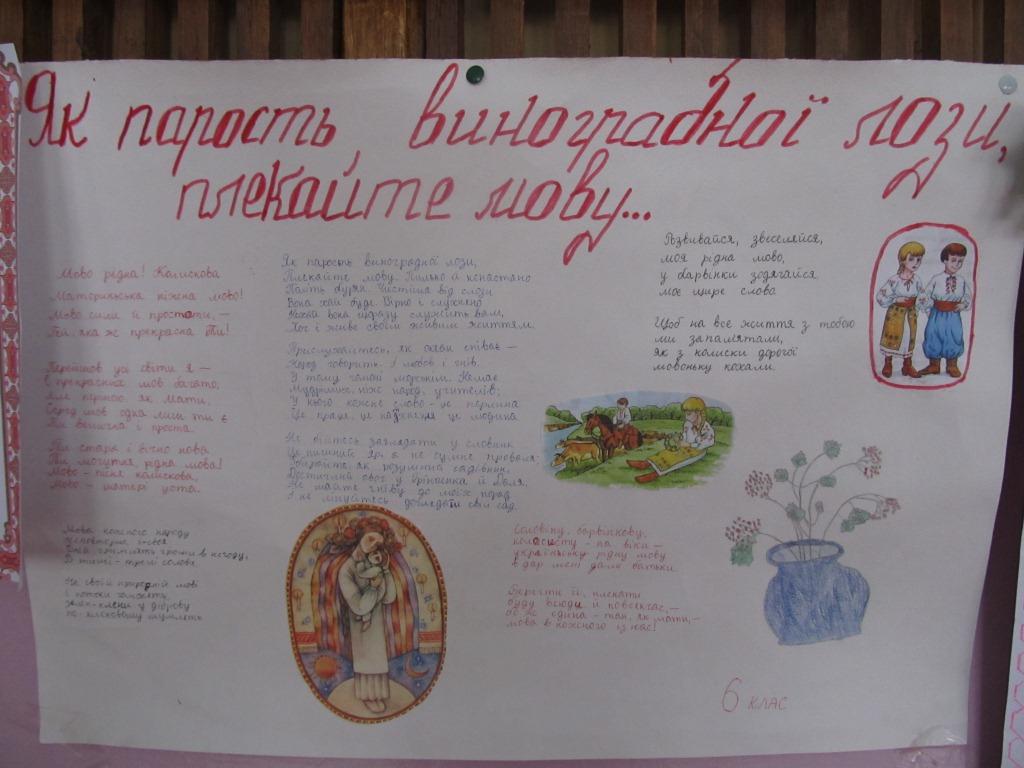 Як парость виноградної лози,
плекайте мову...
Мово рідна! Колискова
Материнська ніжна мово!
Мово сили й простоти, —
Гей, яка ж прекрасна Ти!
Перейшов усі світи я —
Є прекрасних мов багато,
Але першою, як Мати,
Серед мов одна лиш ти є
Ти велична і проста.
Ти стара і вічно нова
Ти могутня, рідна мова!
Мово - пісня колискова,
Мово - матері уста.
Мова кожного народу
неповторна і - своя
в ній гримлять громи в негоду,
В тиші - трелі солов'я.
На своїй природній мові
і потоки гомонять
Клен-клени у діброву
по-кленовому шумлять
Як парость виноградної лози,
Плекайте мову. Пильно й ненастанно
Політь бур'ян. Чистіша від сльози
Вона хай буде. Вірно і слухняно
Нехай вона щоразу служить вам,
Хоч і живе своїм живим життям.
Прислухайтесь, як океан співає —
Народ говорить. І любов, і гнів
У тому гомоні морськім. Немає
Мудріших, ніж народ, учителів;
У нього кожне слово - це перлина
Це праця, це натхнення, це людина.
Не бійтесь заглядати у словник
Це пишний яр, а не сумне провалля
Збирайте, як розумний садівник,
Достиглий овоч у Грінченка й Даля,
Не майте гніву до моїх порад
І не лінуйтесь доглядать свій сад.
Розвивайся, звеселяйся,
моя рідна мово,
у барвінки зодягайся
моє щире слово.
Щоб на все життя з тобою
ми запам'ятали,
Як з колиски дорогої
мовоньку кохали.
Солов'їну, барвінкову,
колосисту - на віки —
українську рідну мову
в дар мені дали батьки.
Берегти її, плекати
буду всюди й повсякчас, —
бо ж єдина - так, як мати, —
мова в кожного із нас!
6 клас